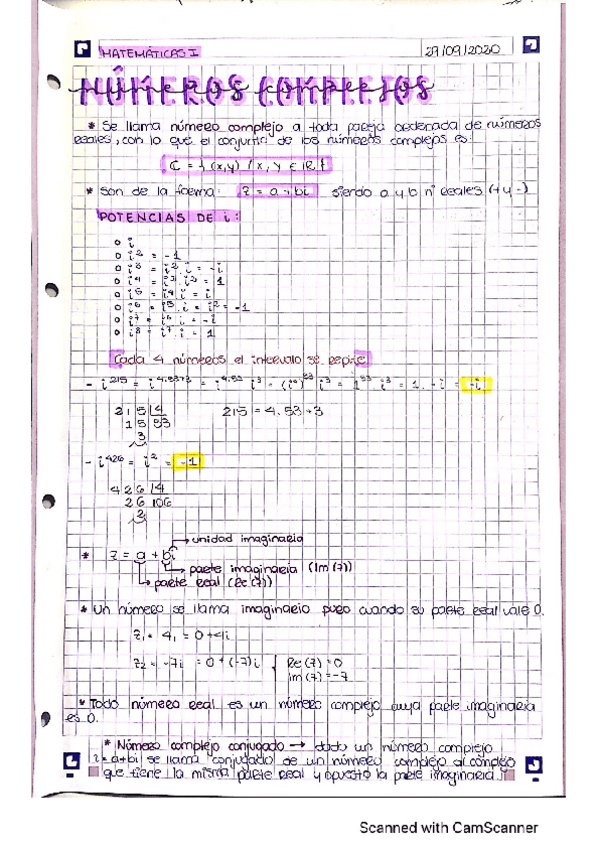 MATEMÁTICAS I
29/09/2020
NÚMEROS COMPLEJOS
* Se llama número complejo a toda pareja ordenada de números
reales, con lo que el conjunto de los números complejos es:
C = { (x,y) / x, y ∈ IR }
* Son de la forma: z = a + bi siendo a y b nº reales (+ y -)
POTENCIAS DE i:
o i
o i² = -1
o i³ = i². i = -i
o i⁴ = i³. i = 1
o i⁵ = i⁴. i = i
o i⁶ = i⁵. i = i² = -1
o i⁷ = i⁶. i = -i
o i⁸ = i⁷. i = 1
Cada 4 números el intervalo se repite
- i²¹⁵ = i⁴·⁵³⁺³ = i⁴·⁵³. i³ = (i⁴)⁵³. i³ = 1⁵³. i³ = 1. -i = -i
215 |4
15 53
3
215 = 4.53+3
- i⁴²⁶ = i² = -1
426 |4
26 106
2
unidad imaginaria
* z = a + bi
parte imaginaria (Im(z))
parte real (Re(z))
* Un número se llama imaginario puro cuando su parte real vale 0.
z₁ = 4i = 0+4i
z₂ = -7i = 0+(-7)i { Re(z)=0
Im(z)=-7
* Todo número real es un número complejo cuya parte imaginaria
es 0.
* Número complejo conjugado → dado un número complejo
z = a+bi se llama conjugado de un número complejo al complejo
que tiene la misma parte real y opuesto la parte imaginaria.
Scanned with CamScanner